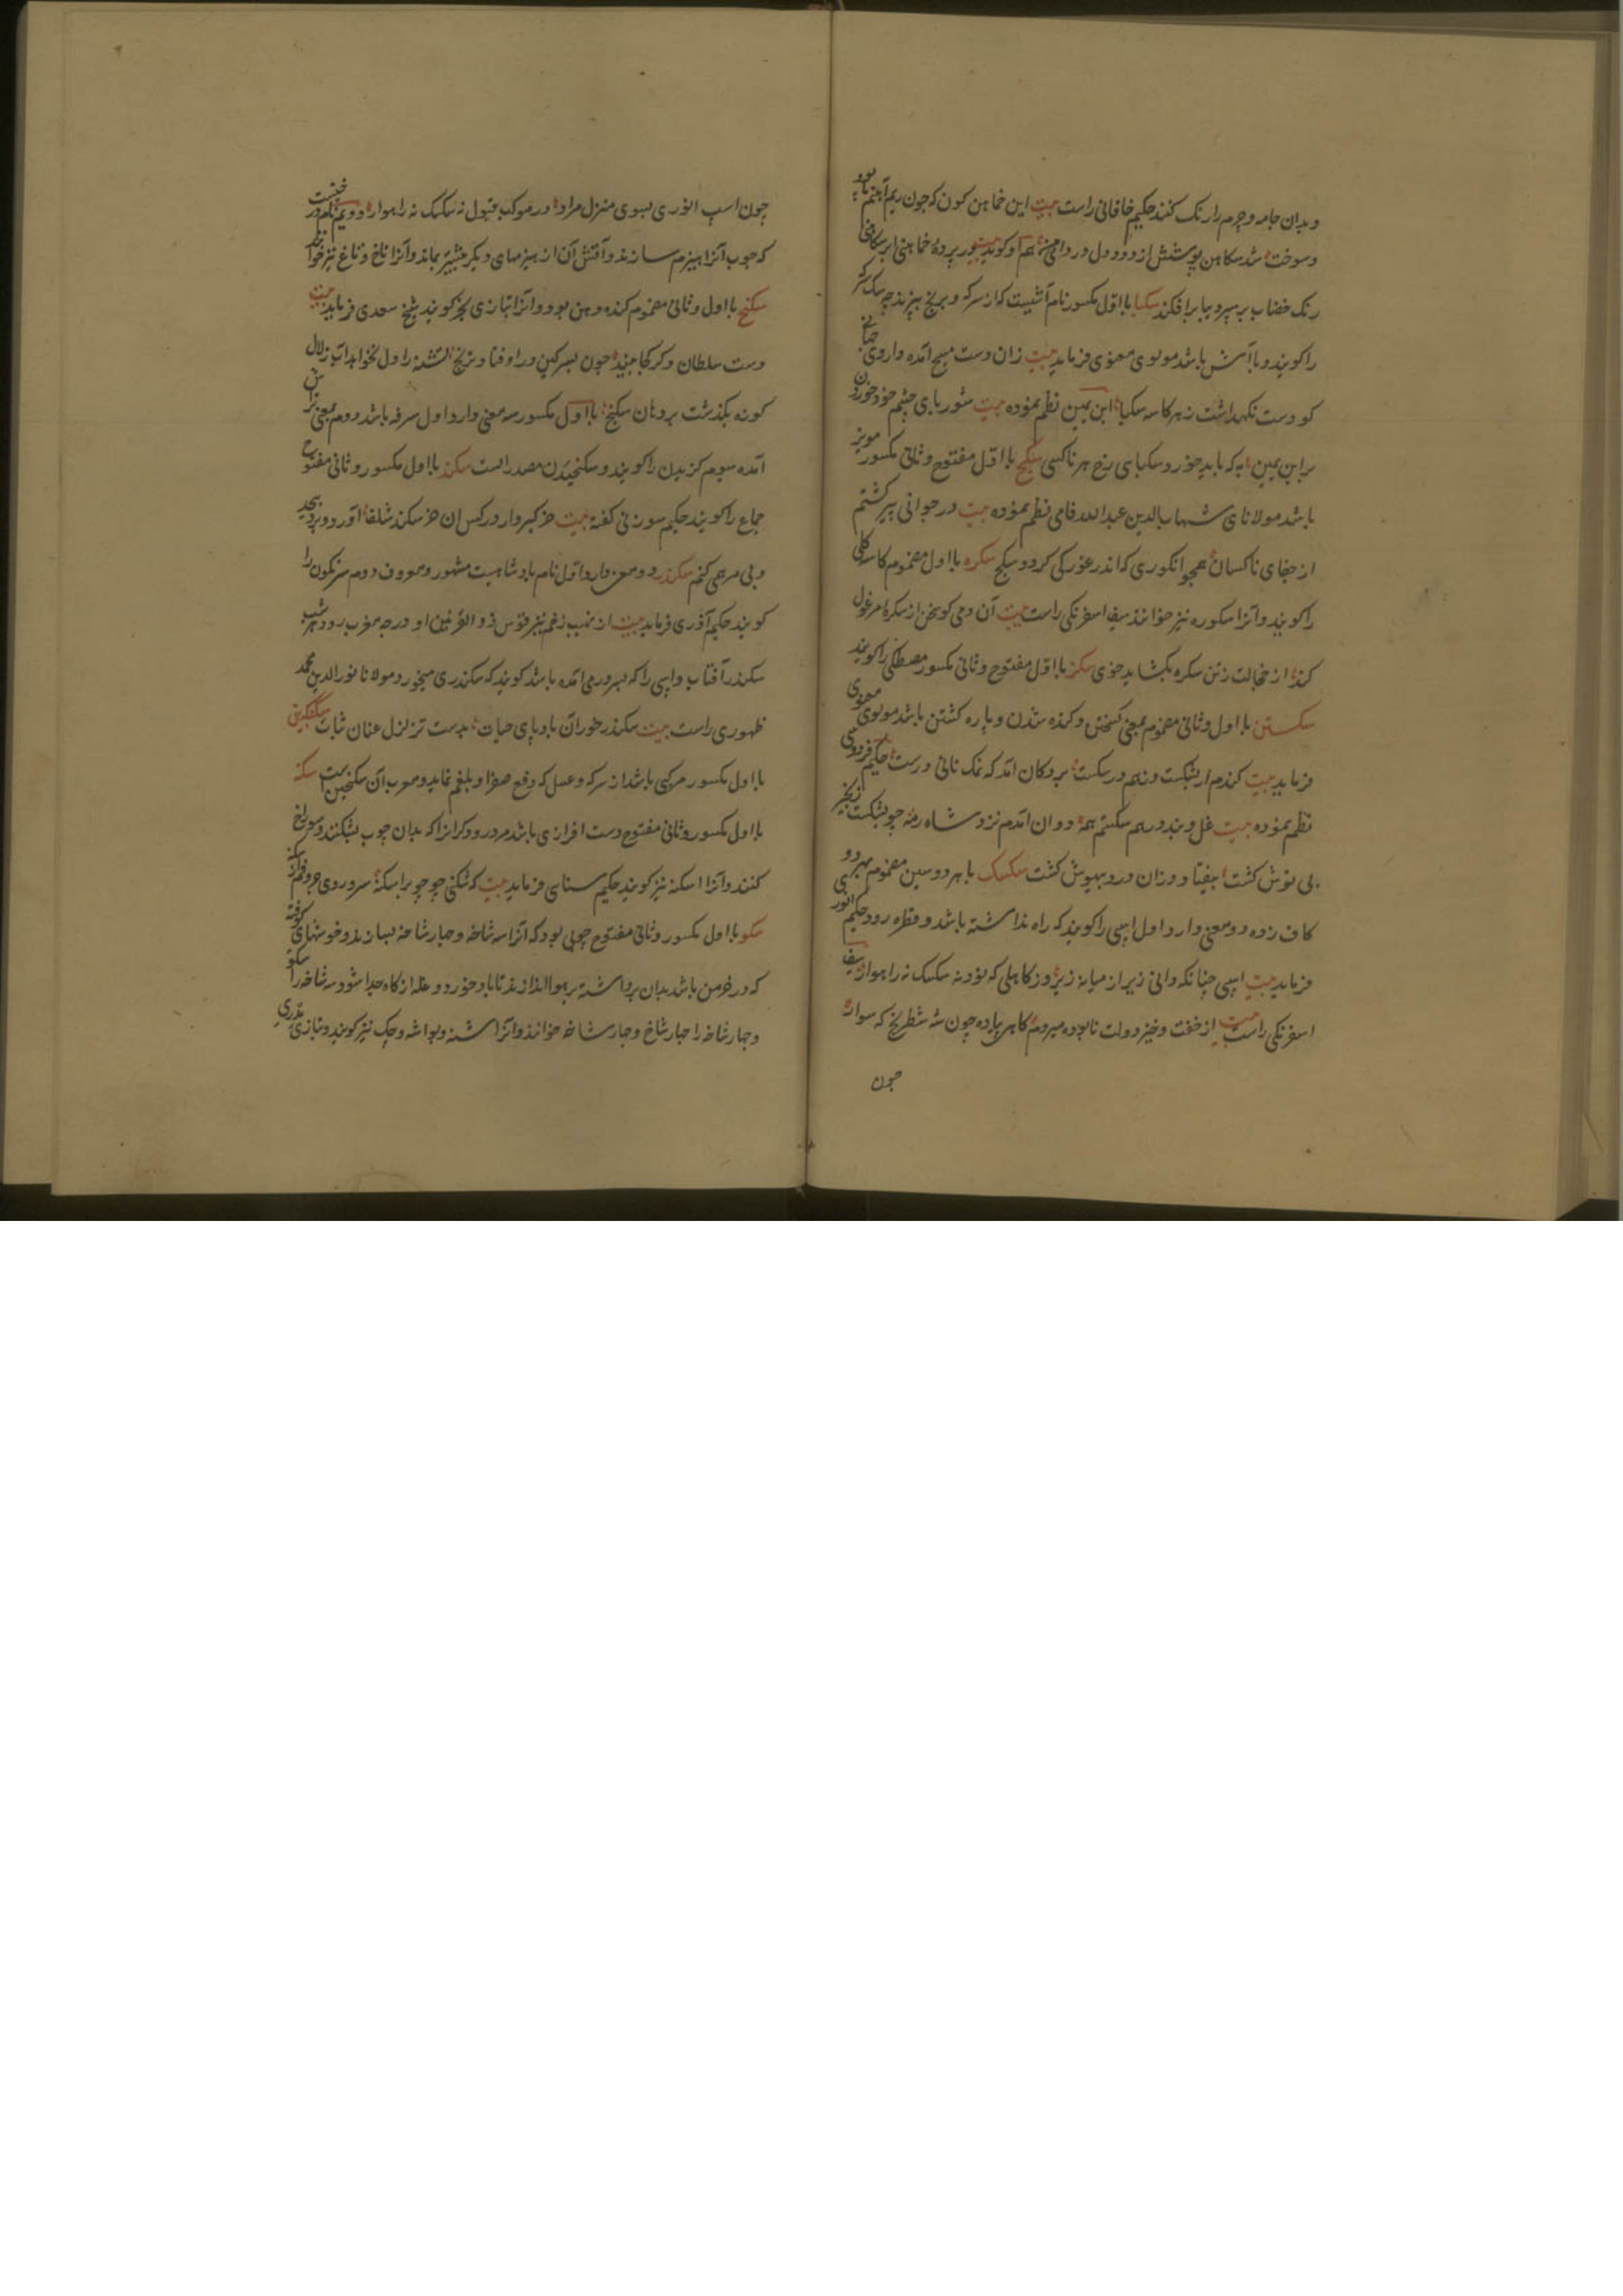 وبدان جامه و چرم را رنک کنند حکیم خاقانی راست بیت این خماهن کون که چون ریم آهنم پالود
وسوخت شد سکاهن پوشش از دود دل دروای من هم او کوید بیت
رنک خضاب بر سر دیبا برافکند سکبا با اول مکسور نام آشیست که از سرکه و برنج پزند چه سک سرکه
را کویند و با آش باشد مولوی معنوی فرماید بیت زان دست مسیح آمده داروی جهانی
کو دست نکهداشت ز هر کاسه سکبا ابن یمین نظم نموده بیت شوربای چشم خود خوردن
بر ابن یمین به که باید خورد سکبای رخ هر ناکسی سکج با اول مفتوح و ثانی مکسور مویز
باشد مولانای شهاب الدین عبدالله فامی نظم نموده بیت در جوانی پیر کشتم
از جفای ناکسان همچو انکوری که اندر غورکی کردد سکج سکره با اول مضموم کاسه کلی
را کویند و آنرا سکوره نیز خوانند سیف اسفرنکی راست بیت آن دمی کو سخن از سکره مرغول
کند از خجالت زتن سکره بکشاید خوی سکز با اول مفتوح و ثانی مکسور مصطکی را کویند
سکستن با اول و ثانی مضموم بمعنی کسختن و کنده شدن و پاره کشتن باشد مولوی معنوی
فرماید بیت کندم ار بشکست وزهم در سکست بر دکان آمد که نک نانی درست حکیم فردوسی
نظم نموده بیت غل و بند درهم سکستم همه دوان آمدم نزد شاه رمه چو بشکست زنجیر
بی توش کشت بیفتاد و زان درد بیهوش کشت سکسک با هر دو سین مضموم و هر دو
کاف زده دو معنی دارد اول اسپی را کویند که راه نداشته باشد و قطره رود حکیم انوری
فرماید بیت اسپی چنانکه دانی زیر از میانه زیر وز کاهلی که بود نه سکسک نه راهوار سیف
اسفرنکی راست بیت از خفت و خیز دولت نابوده میر دهم کاهی پیاده چون شه شطرنج که سوار
چون
چون اسپ انوری بسوی منزل مراد در موکب قبول نه سکسک نه راهوار دویم نام درختیست
که چوب آنرا هیزم سازند و آتش آن از هیزمهای دیکر بیشتر بماند و آنرا تاخ و تاغ نیز خوانند
سکنج با اول و ثانی مضموم کنده دهن بود و آنرا بتازی بخر کویند شیخ سعدی فرماید بیت
دست سلطان دکر کجا بیند چون بسرکین در اوفتاد ترنج تشنه را دل نخواهد آب زلال
کوزه بکذشت بر دهان سکنج با اول مکسور سه معنی دارد اول سرفه باشد دوم بمعنی تراش
آمده سیوم کزیدن را کویند و سکنجیدن مصدر است سکند با اول مکسور و ثانی مفتوح
جماع را کویند حکیم سوزنی کفته بیت
وبی مرهمی کنم سکندر دو معنی دارد اول نام پادشاهیست مشهور و معروف دوم سرنکون را
کویند حکیم آذری فرماید بیت از نهیب زخم تیر قوس ذوالقرنین او در چه مغرب رود هر شب
سکندر آفتاب و اسپی را که بسر درمی آمده باشد کویند که سکندری میخورد مولانا نورالدین محمد
ظهوری راست بیت سکندر خوران بادپای حیات بدست تزلزل عنان ثبات سکنکبین
با اول مکسور مرکبی باشد از سرکه و عسل که دفع صفرا و بلغم نماید و معرب آن سکنجبین است سکنه
با اول مکسور و ثانی مفتوح دست افزاری باشد مر درودکرانرا که بدان چوب بشکنند و سوراخ
کنند و آنرا اسکنه نیز کویند حکیم سنایی فرماید بیت که شکنی چو چوب را سکنه
سکو با اول مکسور و ثانی مفتوح چوبی بود که آنرا سه شاخه و چهارشاخه بسازند و خوشهای کوفته
که در خرمن باشد بدان برداشته بر هوا اندازند تا باد خورد و غله از کاه جدا شود سه شاخه را سکو
و چهارشاخه را چهارشاخ و چهارشاخه خوانند و آنرا شنه و بواشه و چک نیز کویند و بتازی مذری